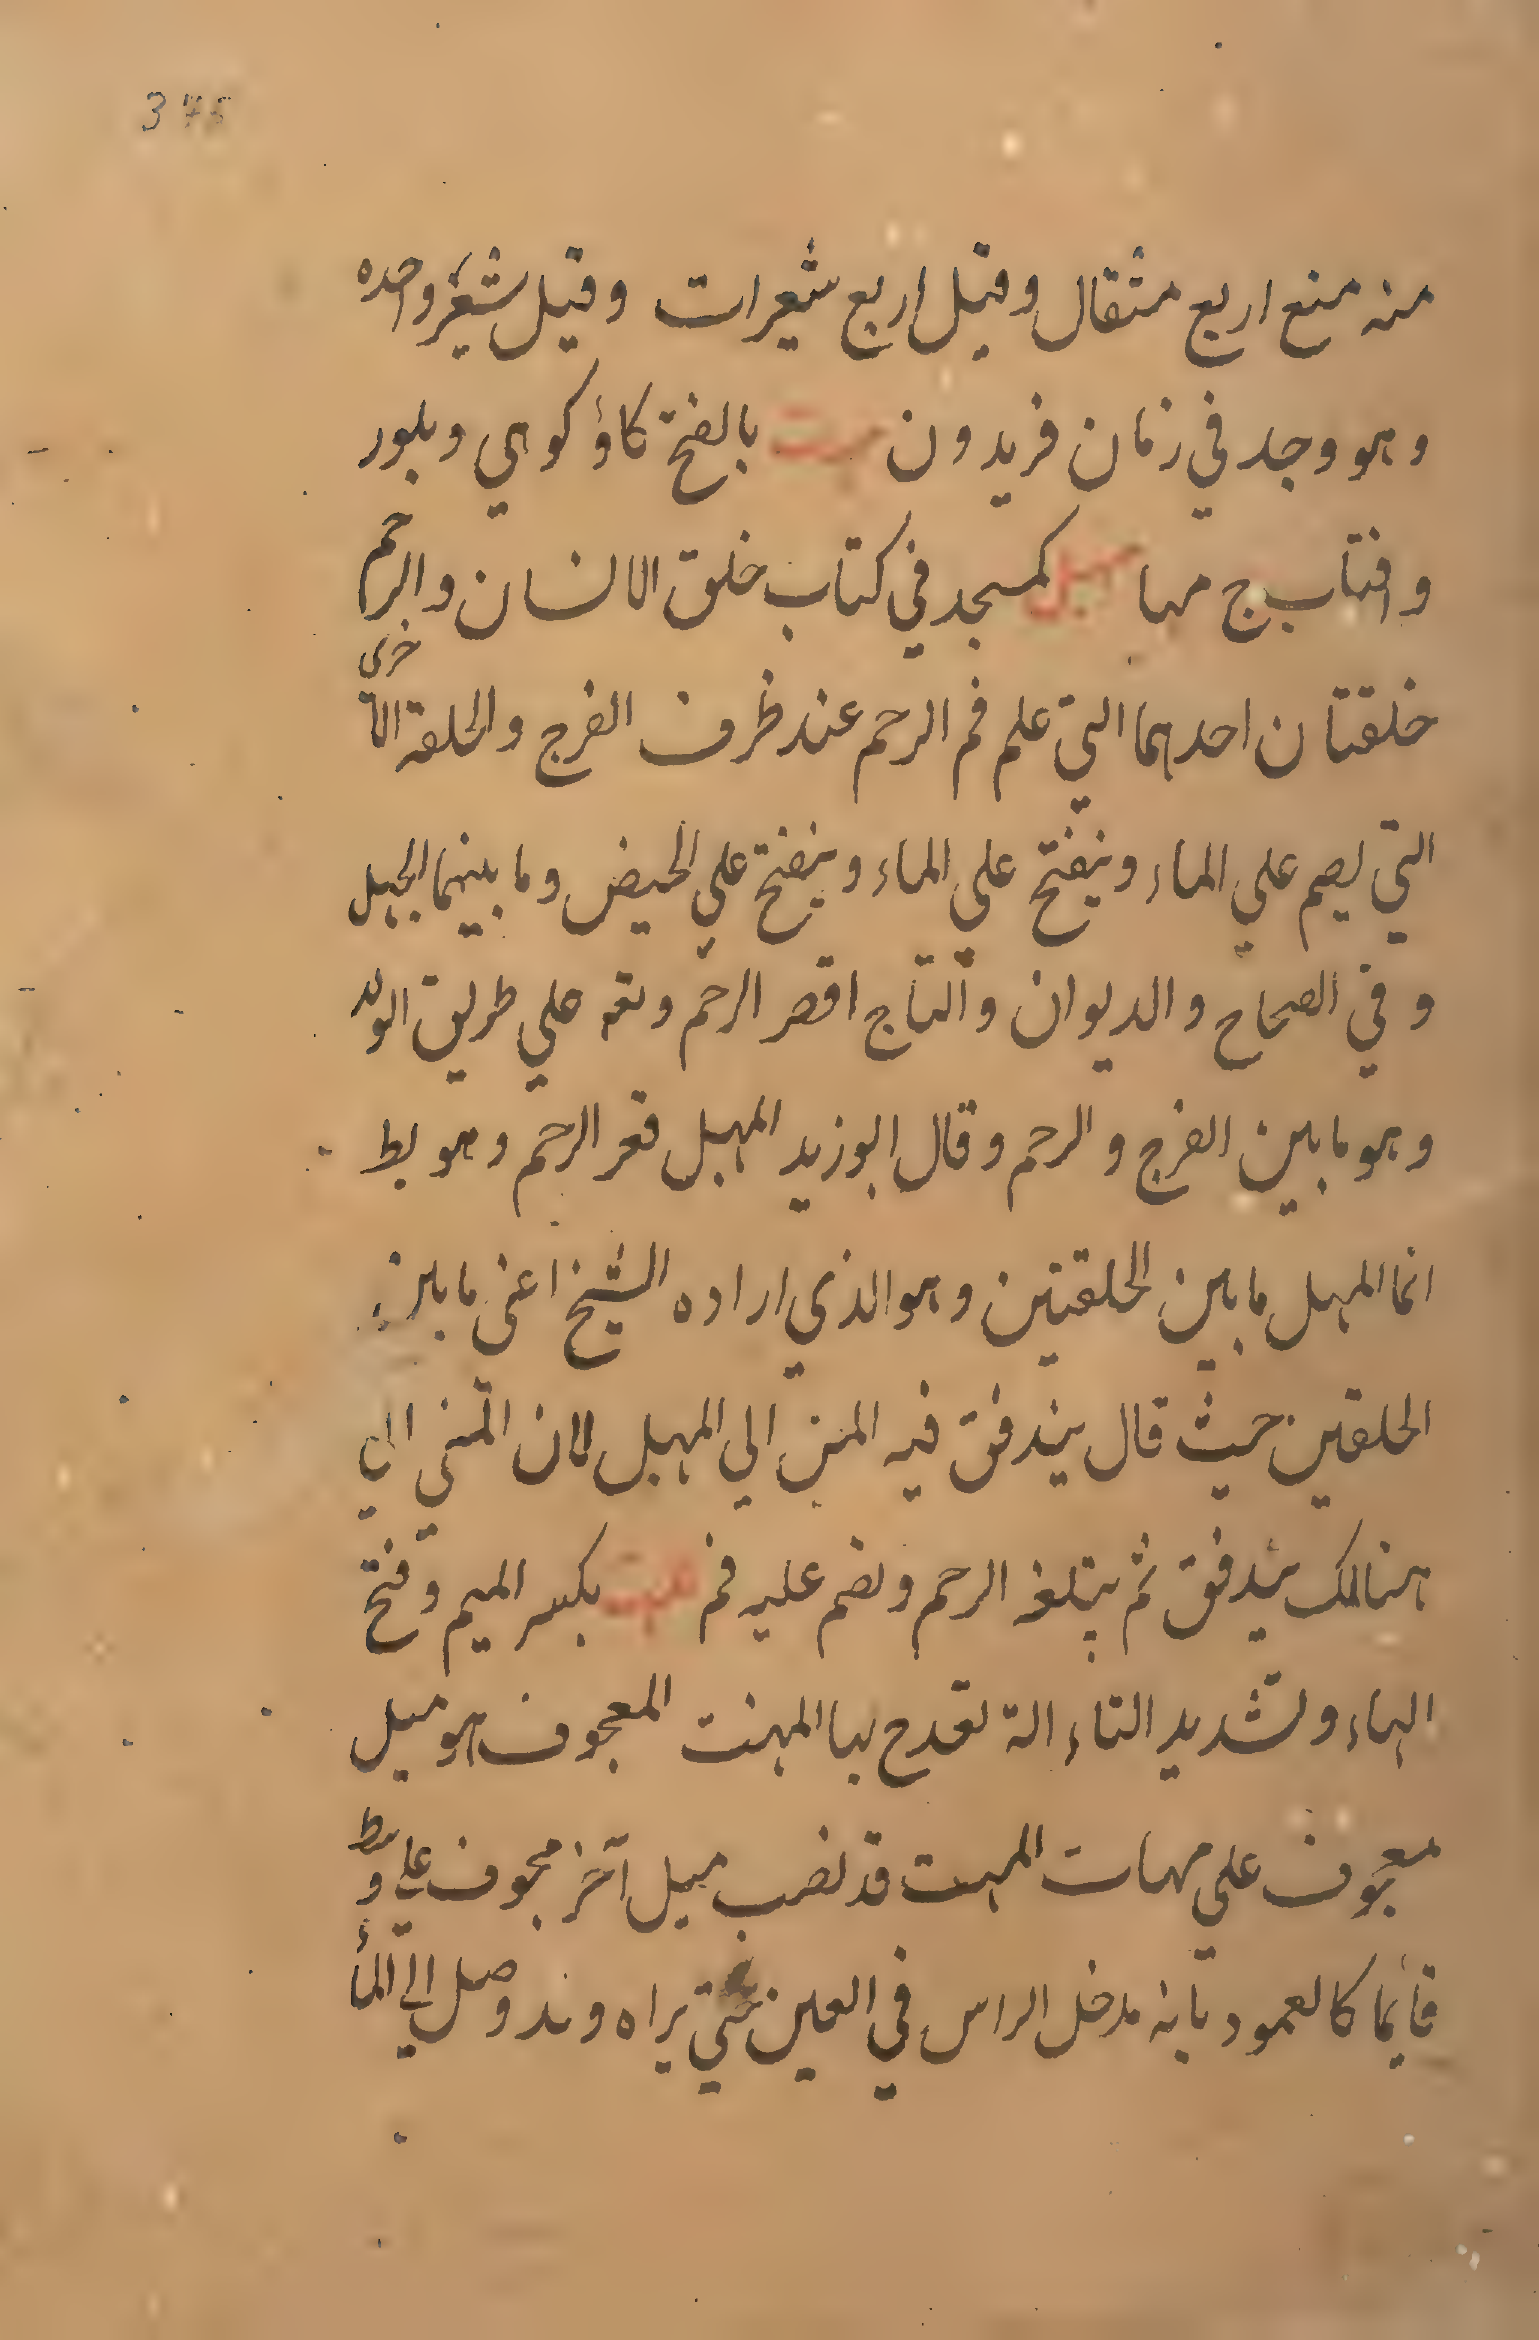 375
منه منع اربع مثقال وقيل اربع شعيرات وقيل شعيرة واحده
وهو وجد في زمان فريدون بالفتح كاؤ كوهي وبلور
وافتاب ج مها مهبل كمسجد في كتاب خلق الانسان والرحم
خلقتان احدهما التي علم فم الرحم عند طرف الفرج والحلقة الاخرى
التي يصم علي الماء وينفتح علي الماء وينفتح علي الحيض وما بينهما المهبل
وفي الصحاح والديوان والتاج اقصر الرحم وتقه علي طريق الولد
وهو ما بين الفرج والرحم وقال ابو زيد المهبل قعر الرحم وهو يط
انما المهبل ما بين الحلقتين وهو الذي اراده الشيخ اعني ما بين
الحلقين حيث قال يندفق فيه المني الي المهبل لان المني الي
هنالك يندفق ثم يبتلغه الرحم ويضم عليه فم مهت بكسر الميم وفتح
الهاء وتشديد التاء الة تقدح بها المهنت المعجوف هو ميل
معجوف علي مهات المهت قد نصب ميل آخر مجوف علي وسط
قائما كالعمود بانه مدخل الراس في العين حتي يراه وند وصل الي الماء